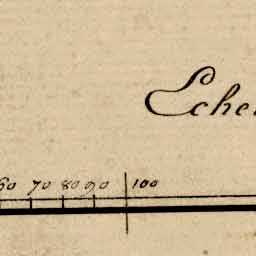 Eche
60 70 80 90 100